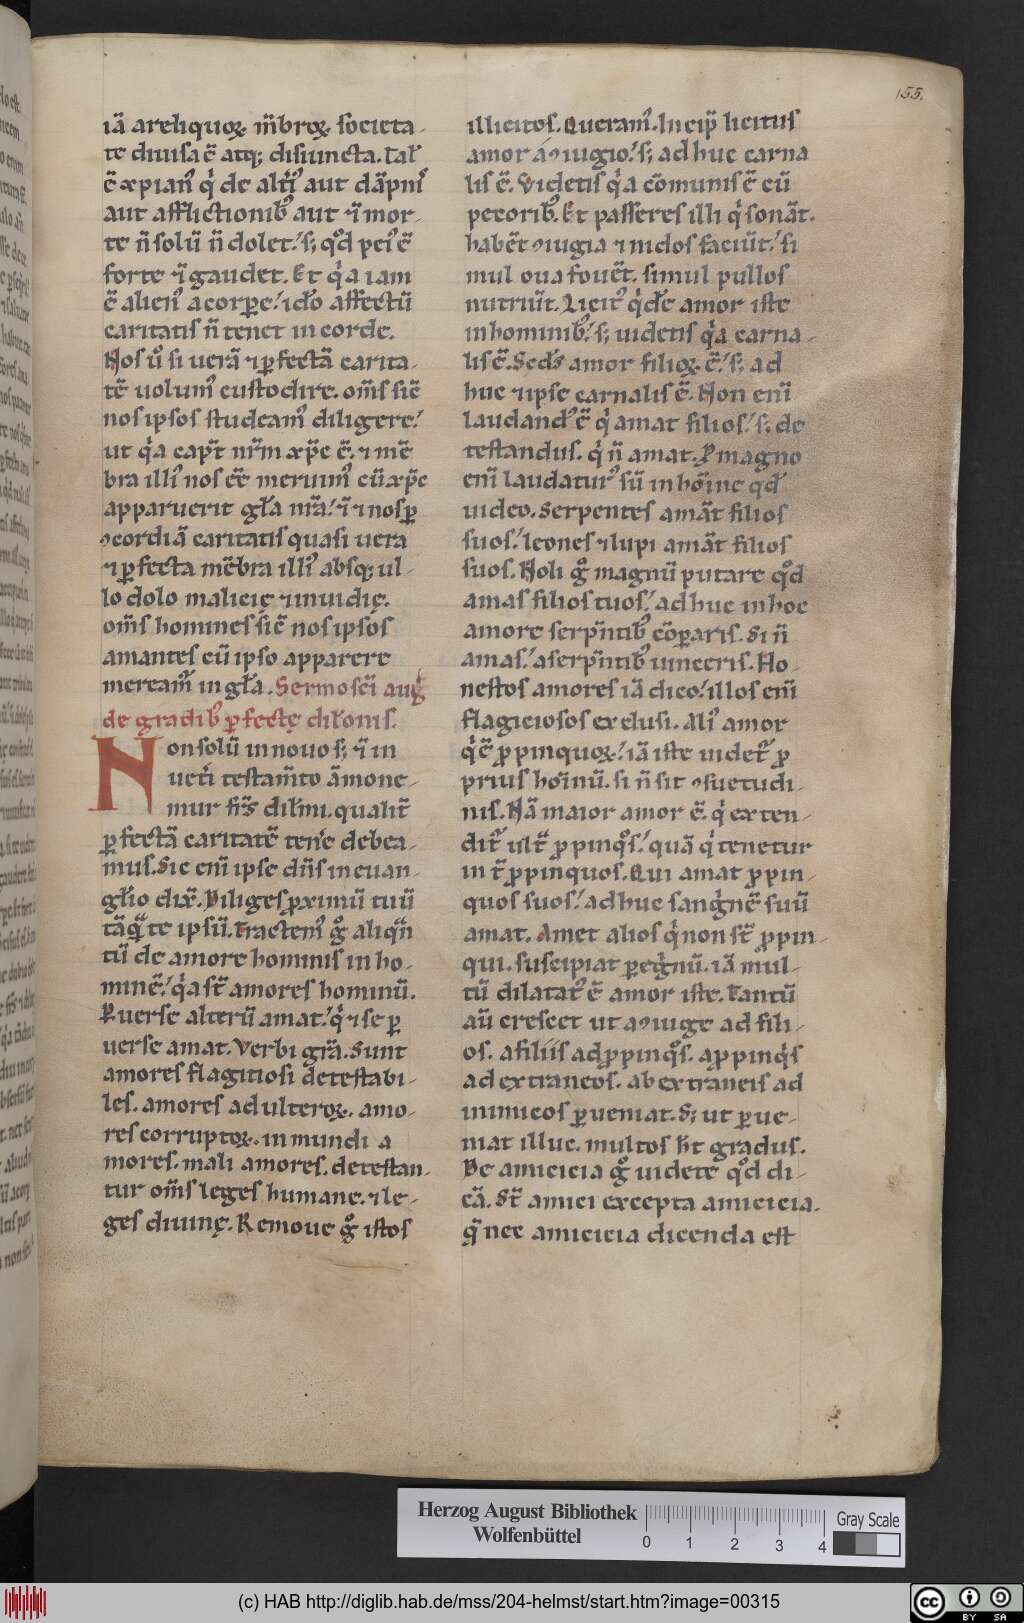 155.
iā areliquoꝝ. m̄broꝝ. societa-
te diuisa ē atq; disiuncta. Tal̄
ē xpian᷒ qͥ de alt̄i᷒ aut dāpni᷒
aut afflictionib᷒ aut ⁊ī mor-
te n̄ solū n̄ dolet.' s; qͦd pei᷒ ē
forte ⁊ī gaudet. Et qͥa iam
ē alien᷒ acorpe.' id̄o affectū
caritatis n̄ tenet in corde.
Nos uͦ si uerā ⁊ ꝑfectā carita-
tē uolum᷒ custodire. om̄s sic̄
nos ipsos studeam᷒ diligere.'
ut qͥa capt̄ nr̄m xp̄c ē. ⁊ mē
bra illi᷒ nos ēē merum᷒ cū xp̄c
apparuerit gl̄a nr̄a.' ⁊ī ⁊ nos ꝑ
ꝯcordiā caritatis quasi uera
⁊ ꝑfecta mēbra illi᷒ absq; ul-
lo dolo malicię ⁊ inuidię.
om̄s homines sic̄ nos ipsos
amantes cū ipso apparere
meream᷒ in gl̄a. Sermo sc̄i auḡ
de gradib᷒ ꝑfectę dil̄onis.
Non solū in nouo s; ⁊ī in
uetͥi testam̄to āmone-
mur fr̄s dil̄mi. qualit̄
ꝑfectā caritatē ten̄e debea-
mus. Sic eni̅ ipse dn̄s in euan-
gl̄io dix̄. Diliges ꝓximū tuū
tāqͣ te ipsū. Tractem᷒ gͦ aliqn̄
tū de amore hominis in ho-
minē.' qͥa st̄ amores hominū.
Puerse alterū amat.' qͥ ⁊ se ꝑ
uerse amat. Verbi grā. Sunt
amores flagitiosi detestabi-
les. amores adulteroꝝ. amo-
res corruptoꝝ. inmundi a
mores. mali amores. detestan-
tur om̄s leges humane. ⁊ le-
ges diuinę. Remoue gͦ istos
illicitos. Queram᷒. Incip̄ licitus
amor á ꝯiugio.' s; ad huc carna
lis ē. Videtis qͥa cōmunis ē cū
pecorib᷒. Et passeres illi qͥ sonāt.
habēt ꝯiugia ⁊ nidos faciūt.' si
mul oua fouēt. simul pullos
nutriūt. Licit᷒ qͥdē amor iste
in hominib᷒.' s; uidetis qͥa carna-
lis ē. Sec̄ds amor filioꝝ. ē.' s; ad
huc ⁊ ipse carnalis ē. Non eni̅
laudand᷒ ē qͥ amat filios.' s; de
testandus. qͥ n̄ amat. P magno
eni̅ laudatur᷒ sū in hōine qd̄
uideo. Serpentes amāt filios
suos.' leones ⁊ lupi amāt filios
suos. Noli gͦ magnū putare qͦd
amas filios tuos.' ad huc in hoc
amore serp̄ntib᷒ cōparis. Si n̄
amas.' aserp̄ntib᷒ uinceris. Ho-
nestos amores iā dico.' illos eni̅
flagiciosos exclusi. Ali᷒ amor
qͥ ē ꝓpinquoꝝ.' iā iste uidet᷒ ꝓ
prius hoīnū. si n̄ sit ꝯsuetudi-
nis. Nā maior amor ē. qͥ exten-
dit᷒ ult̄ ꝓpinqͦs.' quā qͥ tenetur
int̄ ꝓpinquos. Qui amat ꝓpin-
quos suos.' ad huc sangͥnē suū
amat. Amet alios qͥ non st̄ ꝓpin-
qui. suscipiat ꝑegͥnū. iā mul-
tū dilatat᷒ ē amor iste. Tantū
au̅ crescet ut a ꝯiuge ad fili-
os. a filiis ad ꝓpinqͦs. a ꝓpinqͥs
ad extraneos. ab extraneis ad
inimicos ꝑueniat. S; ut ꝑue-
niat illuc. multos h̄t gradus.
De amicicia gͦ uidete qͦd di-
cā. St̄ amici excepta amicicia.
qͣ nec amicicia dicenda est
Herzog August Bibliothek
Wolfenbüttel
0 1 2 3 4
Gray Scale
(c) HAB http://diglib.hab.de/mss/204-helmst/start.htm?image=00315
cc BY SA